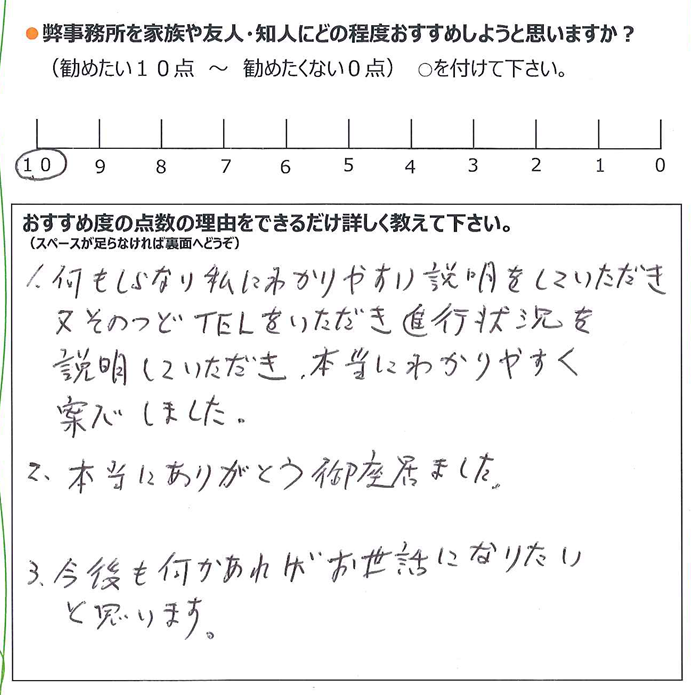 ●弊事務所を家族や友人・知人にどの程度おすすめしようと思いますか？
（勧めたい１０点　～　勧めたくない０点）　○を付けて下さい。
10 9 8 7 6 5 4 3 2 1 0
おすすめ度の点数の理由をできるだけ詳しく教えて下さい。
（スペースが足らなければ裏面へどうぞ）
1、何もしらない私にわかりやすい説明をしていただき
又そのつどTELをいただき進行状況を
説明していただき、本当にわかりやすく
しました。
2、本当にありがとう御座居ました。
3、今後も何かあればお世話になりたい
と思います。